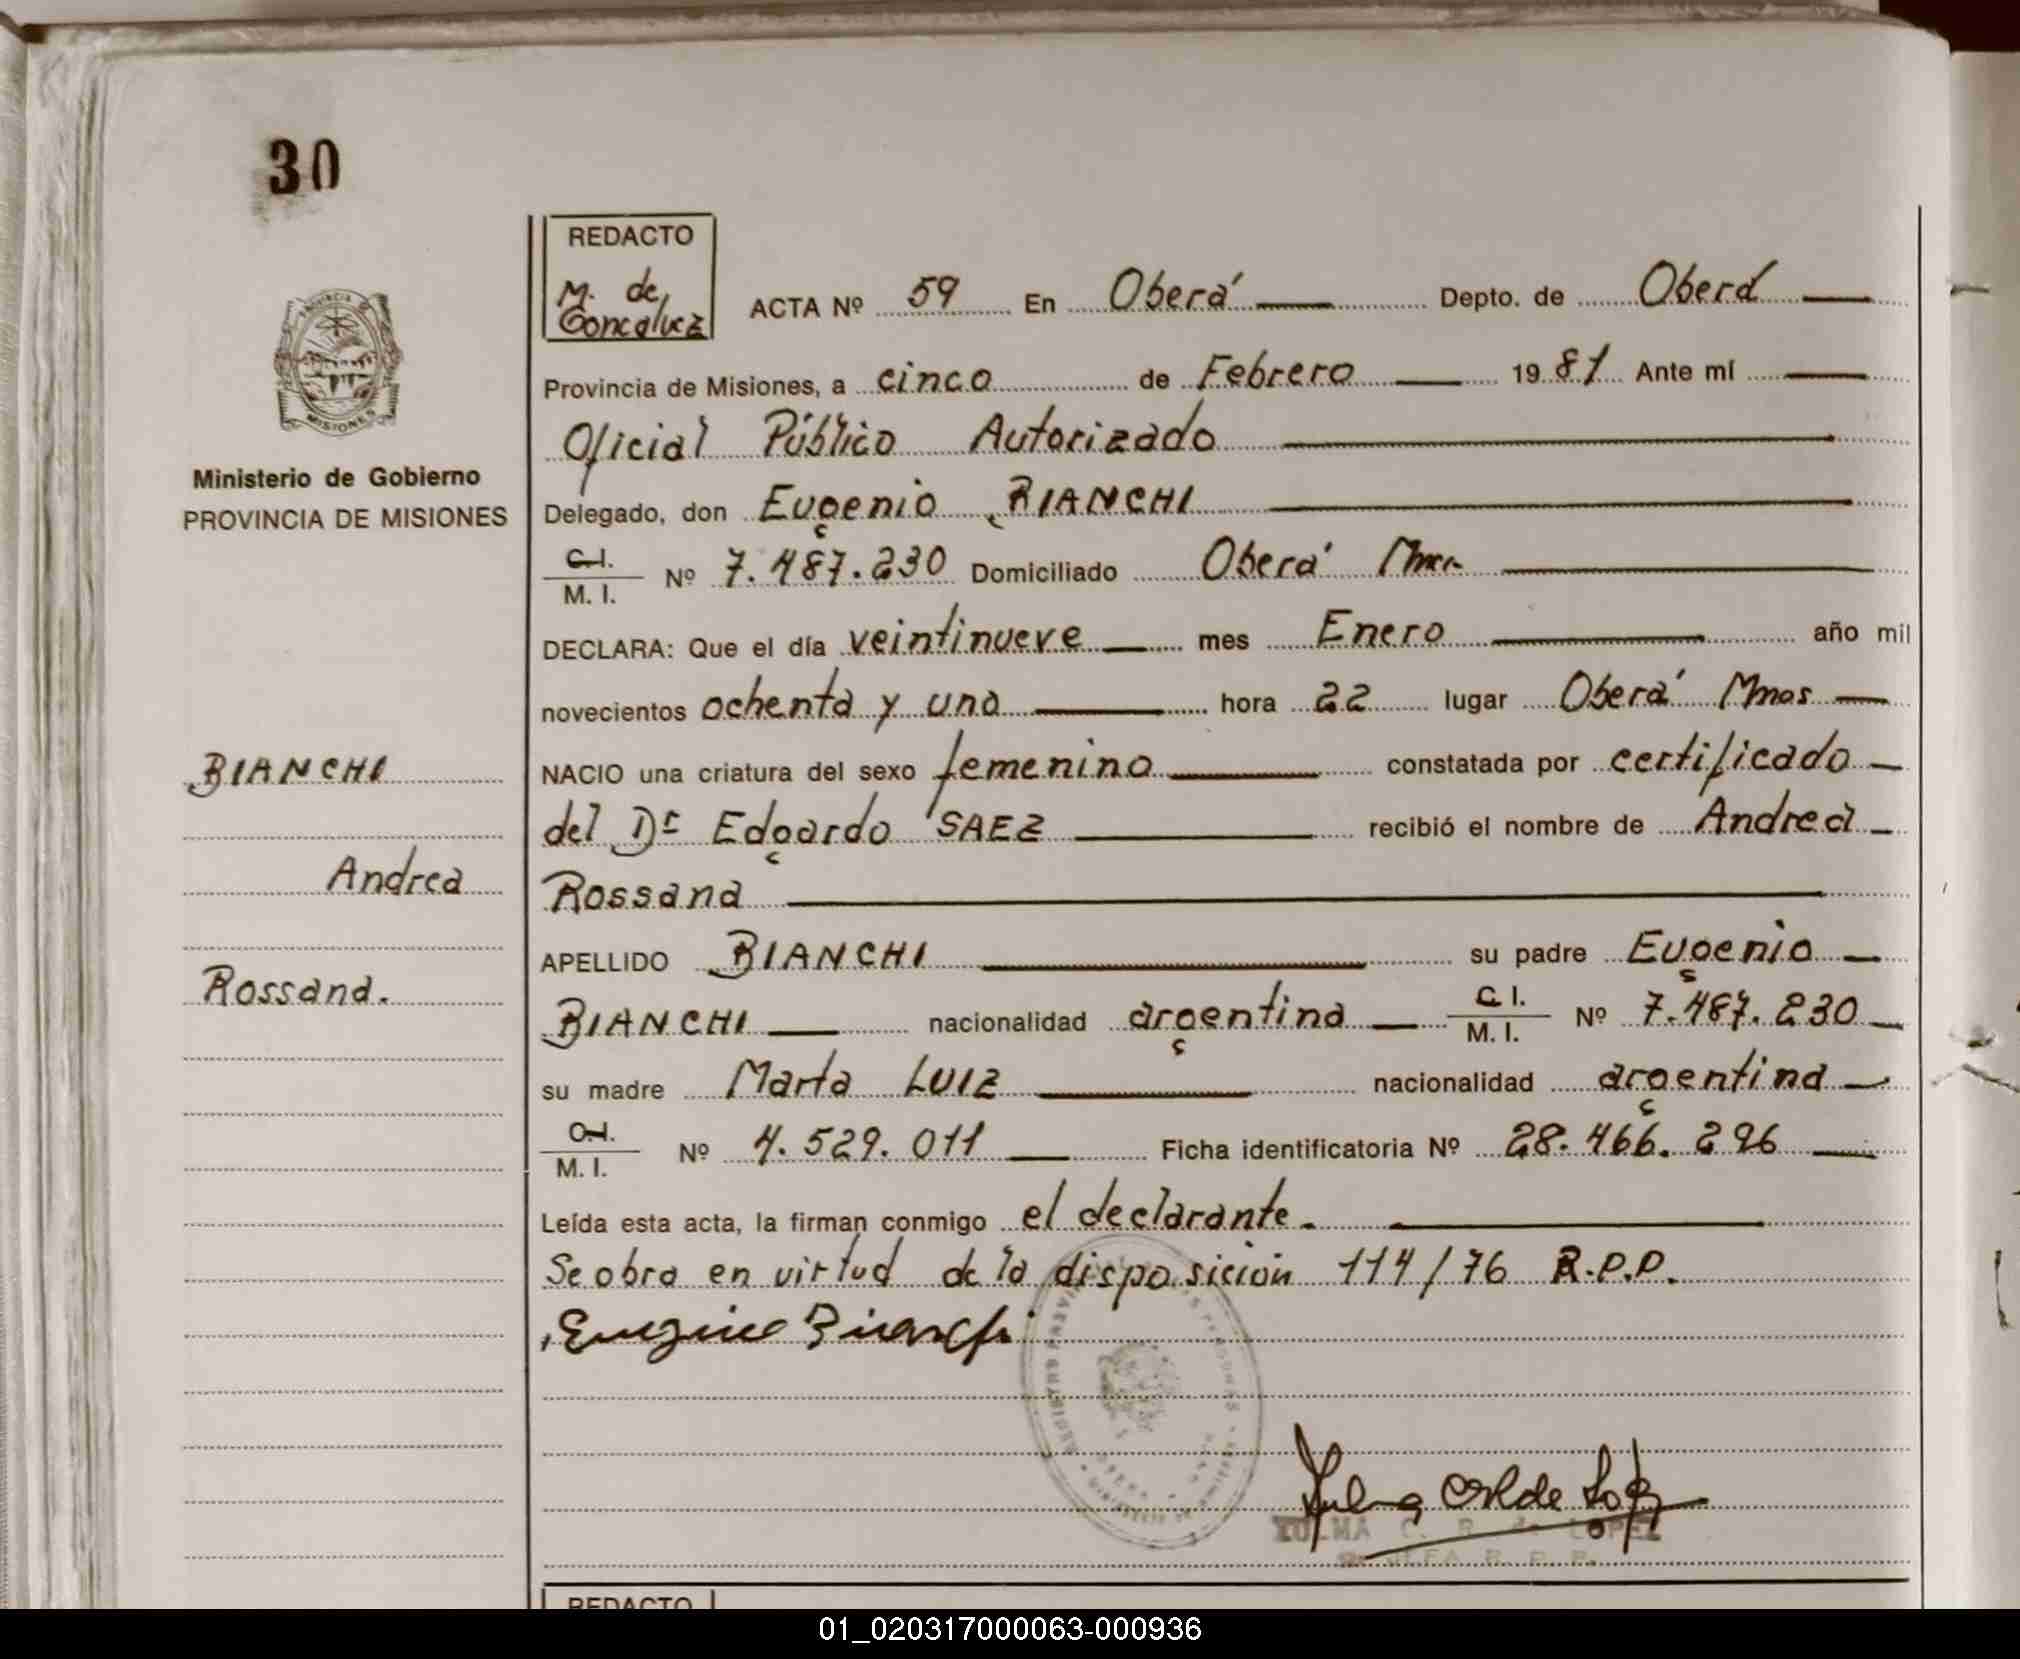 30
REDACTO
M. de
Goncalvez
ACTA Nº 59 En Oberá Depto. de Oberá
Provincia de Misiones, a cinco de Febrero 1981 Ante mí
Oficial Público Autorizado
Delegado, don Eugenio BIANCHI
C.I. M. I. Nº 7.487.230 Domiciliado Oberá
DECLARA: Que el día veintinueve mes Enero año mil
novecientos ochenta y uno hora 22 lugar Oberá Mnes
NACIO una criatura del sexo femenino constatada por certificado
del Dr Edgardo SAEZ recibió el nombre de Andrea
Rossana
APELLIDO BIANCHI su padre Eugenio
BIANCHI nacionalidad argentina C. I. M. I. Nº 7.487.230
su madre Marta LUIZ nacionalidad argentina
C.I. M. I. Nº 4.529.011 Ficha identificatoria Nº 28.466.296
Leída esta acta, la firman conmigo el declarante.
Se obra en virtud de la disposición 114/76 R.P.P.
Eugenio Bianchi
C. R. de LOPEZ
JEFA R. P. P.
REDACTO
PROVINCIA DE
MISIONES
Ministerio de Gobierno
PROVINCIA DE MISIONES
BIANCHI
Andrea
Rossana.
01_020317000063-000936